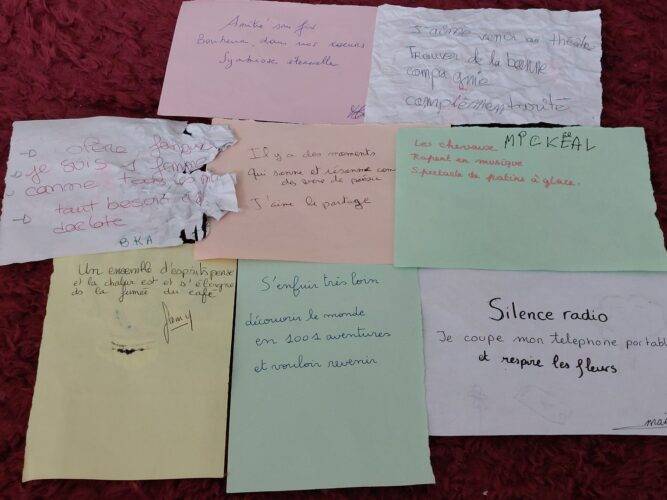 Amitié sans fin
Bonheur dans nos coeurs
Symbiose éternelle
J'aime venir au théâtre
Trouver de la bonne
compagnie
complémentarité
je suis 1 femme
comme toutes
tant besoin
BKA
Il y a des moments
Qui sonne et résonne com
des vers de poésie
J'aime le partage
Les chevaux
Rapent en musique
Spectacle de patins à glace.
Un ensemble d'esprits pense
et la chaleur est et s'éloigne
ds la fumée du café
Samy
S'enfuir très loin
découvrir le monde
en 1001 aventures
et vouloir revenir
Silence radio
Je coupe mon telephone portabl
et respire les fleurs